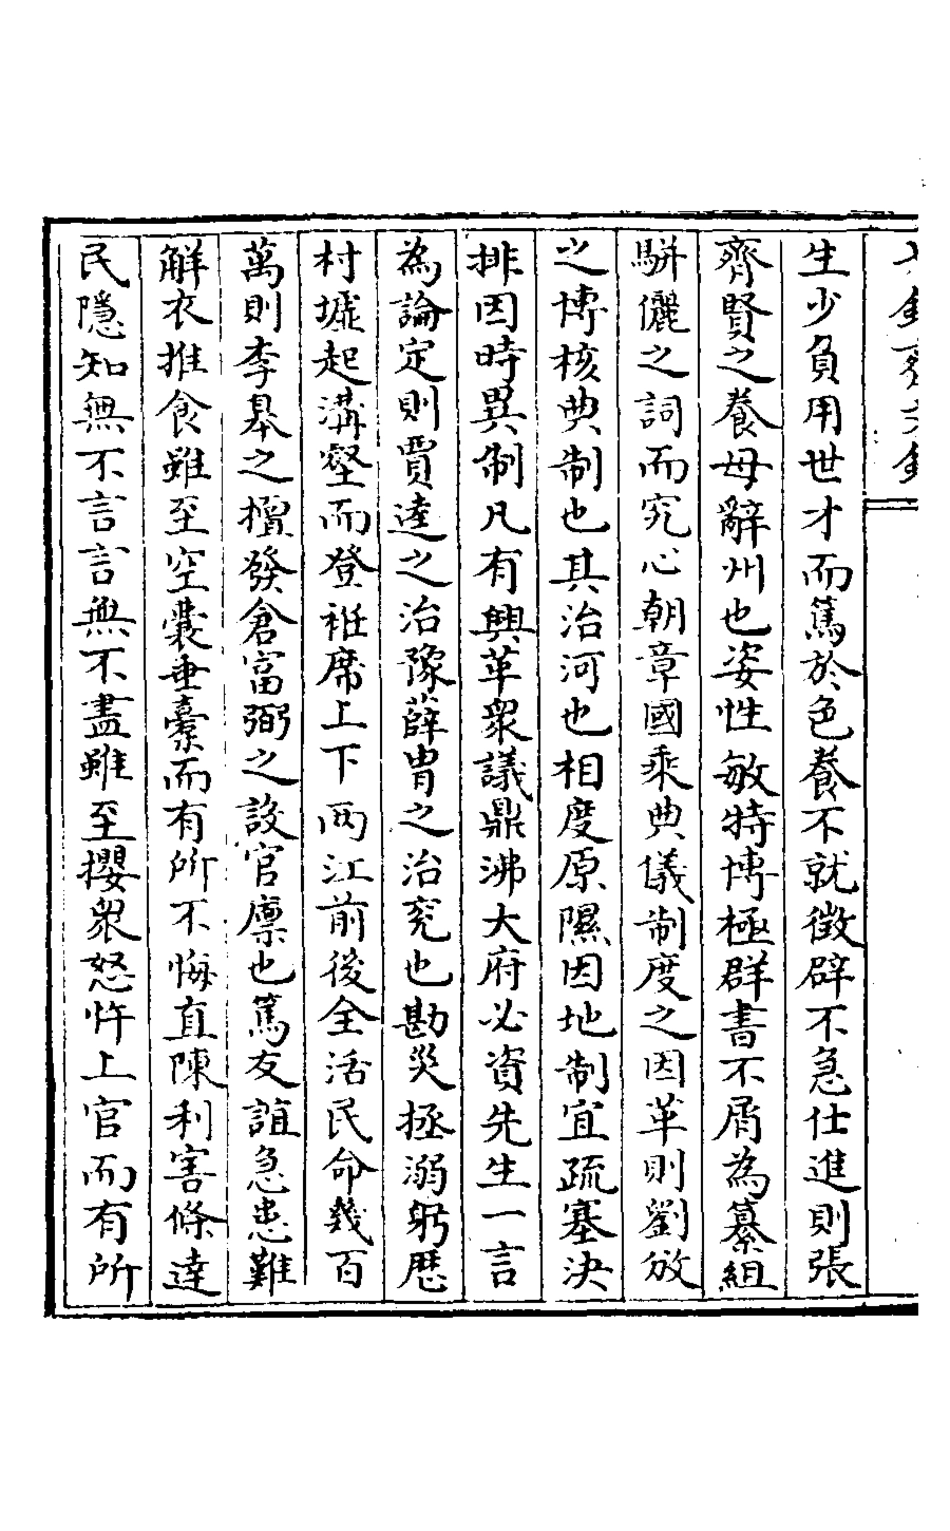 生少負用世才而篤於色養不就徵辟不急仕進則張
齊賢之養母辭州也姿性敏特博極群書不屑為纂組
駢儷之詞而究心朝章國乘典儀制度之因革則劉攽
之博核典制也其治河也相度原隰因地制宜疏塞決
排因時異制凡有興革衆議鼎沸大府必資先生一言
為論定則賈逵之治豫薛胄之治兖也勘災拯溺躬歷
村墟起溝壑而登袵席上下两江前後全活民命幾百
萬則李皋之擅發倉富弼之設官廪也篤友誼急患難
解衣推食雖至空囊垂橐而有所不悔直陳利害條達
民隱知無不言言無不盡雖至攖衆怒忤上官而有所